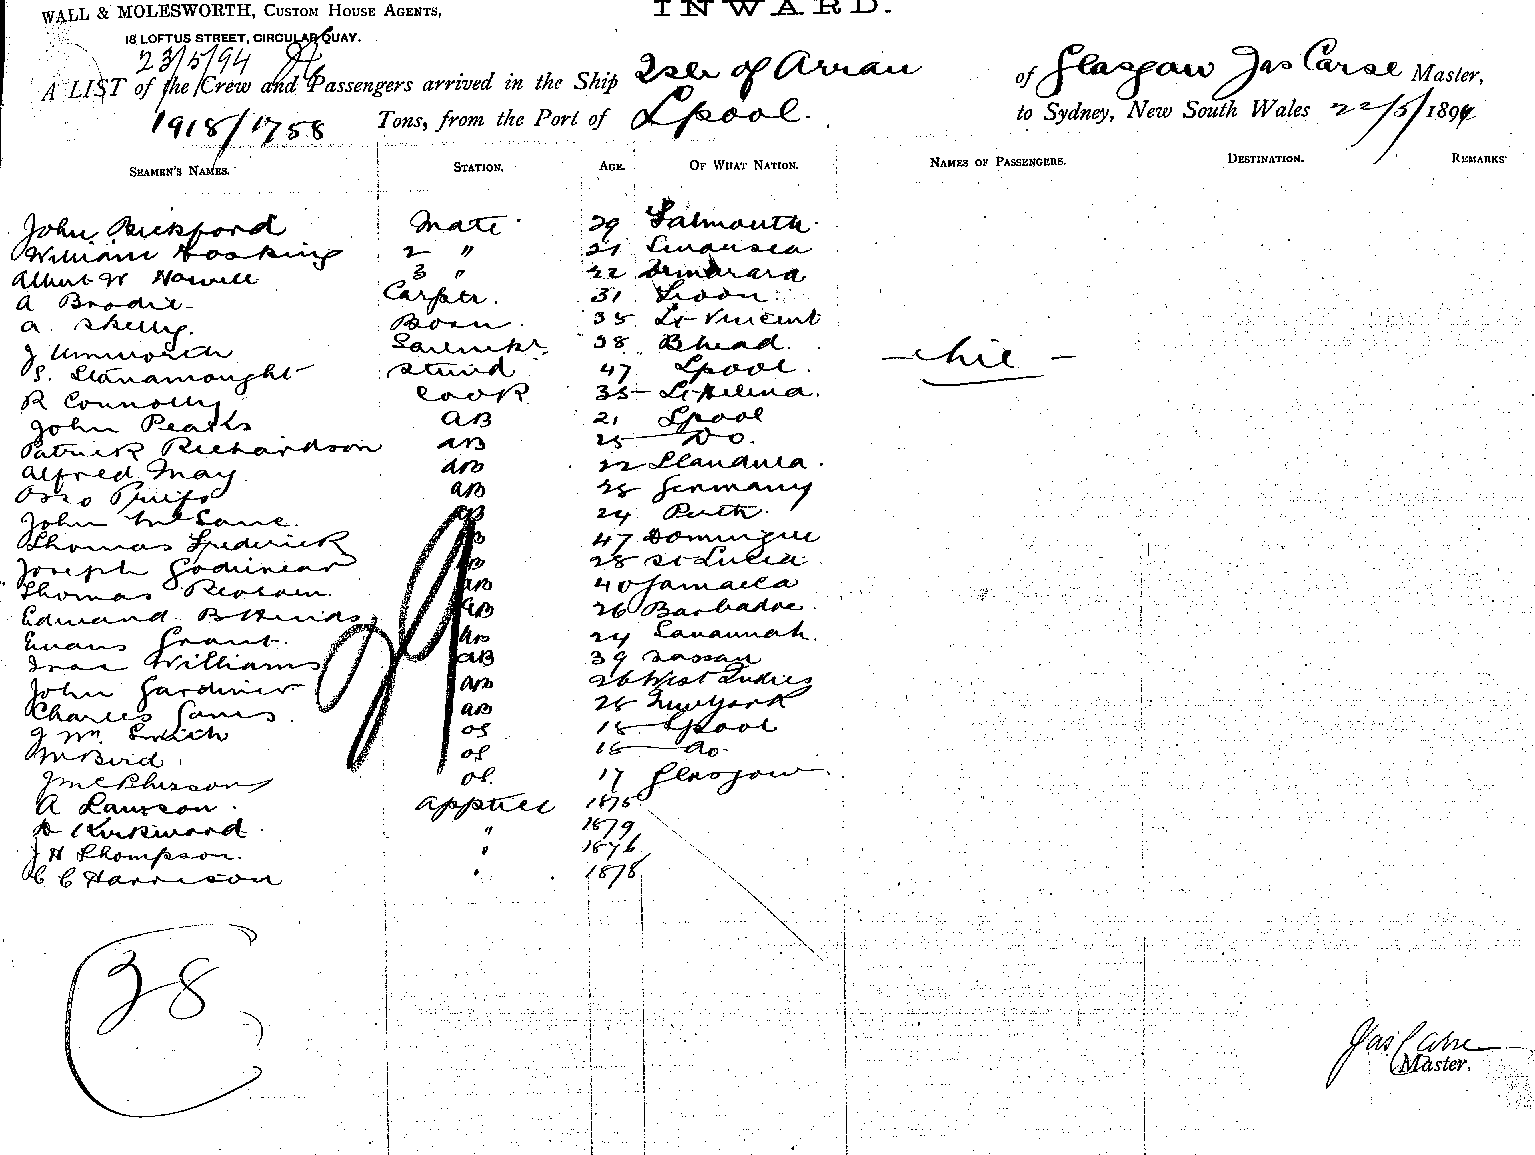 WALL & MOLESWORTH, CUSTOM HOUSE AGENTS,
INWARD.
18 LOFTUS STREET, CIRCULAR QUAY.
23/5/94
A LIST of the Crew and Passengers arrived in the Ship Isle of Arran of Glasgow Jas Carse Master,
1918/1758 Tons, from the Port of Lpool. to Sydney, New South Wales 22/5/1894
SEAMEN'S NAMES. STATION. AGE. OF WHAT NATION. NAMES OF PASSENGERS. DESTINATION. REMARKS
John Bickford Mate 29 Falmouth
William Hosking 2 " 21 Swansea
Albert W Howell 3 " 22 Demarara
A Brodie Carptr. 31
A. Skelly. Bosn 35 St Vincent
J Unsworth Sailmkr 38 Bhead.
S. Stuird 47 Lpool.
R Connolly Cook 35 St Helena.
- Nil -
John AB 21 Lpool
Patrick Richardson AB 25 Do.
Alfred May AB 22
Otto AB 28 Germany
John McLane. AB 24 Perth
Thomas Frederick AB 47 Dominique
Joseph AB 28 St Lucia
Thomas AB 40 Jamaica
Edmund B Hinds AB 26 Barbadoe
Evans Grant. AB 24 Savannah.
Isaac Williams AB 39 Nassau
John Gardiner AB 26 West Indies
Charles AB 28 New York
J Wm Smith OS 18 Lpool
W Bird OS 18 do
J McPherson OS. 17 Glasgow
A Lawson Apptice 1875
D Kirkwood " 1879
J H Thompson. " 1876
C C Harrison " 1878
29
28
Jas Carse
Master.